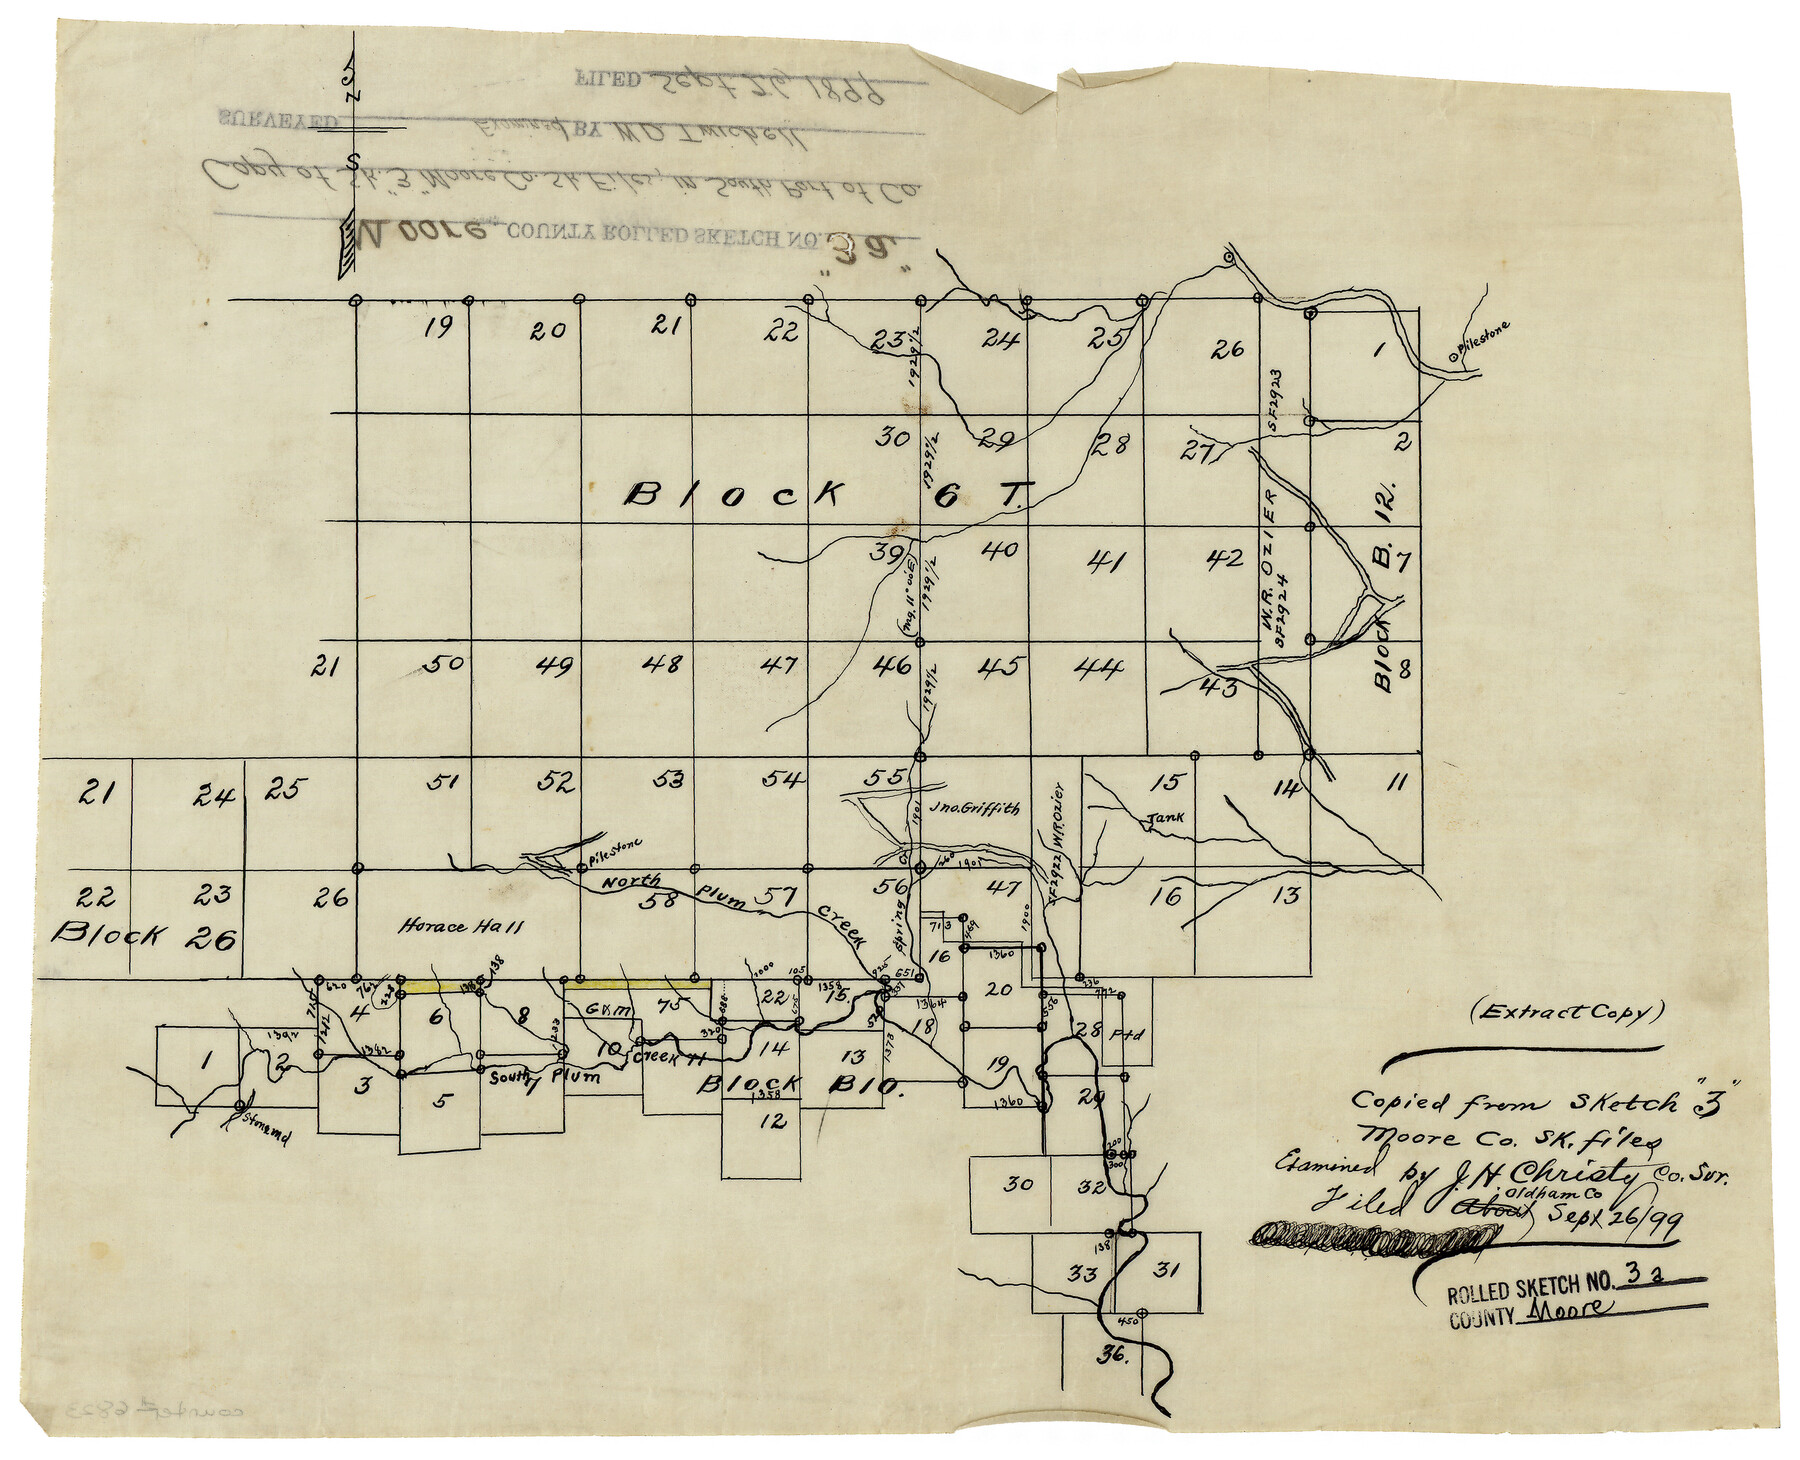 FILED Sept 26, 1899
SURVEYED Examined BY W.D. Twichell
Copy of Sk. "3" Moore Co. Sk. Files, in South Part of Co.
Moore COUNTY ROLLED SKETCH NO. "3a"
N
S
19 20 21 22 23 24 25 26 1
Pilestone
1929½
SF2923
30 29 28 27 2
1929½
Block 6 T.
39 40 41 42 7
(Mg. 11°00'E)
1929½
W.R. OZIER
SF2924
Block B. 12.
21 50 49 48 47 46 45 44 43 8
1929½
21 24 25 51 52 53 54 55 15 14 11
Jno. Griffith
1901
SF2922 W.R. Ozier
Tank
Pilestone
260 1901
22 23 26 58 57 56 47 16 13
Block 26
Horace Hall
North Plum Creek
Spring Cr.
1900
713 469
16 1360
620 762 228 138 138 2000 105 1358 925 651 236
4 6 8 G&M 75 22 15 1364 20 772
1392 1242 1392 233 320 688 675 337 18 28 Ptd
1 2 3 5 10 Creek 11 14 13 1373 19 29
South Plum
Block B10.
1358
12
1360
Stone md
200
300
30 32
138
33 31
450
36.
(Extract Copy)
Copied from Sketch "3"
Moore Co. SK. files
Examined by J.H. Christy Co. Sur.
Oldham Co
Filed About Sept 26/99
ROLLED SKETCH NO. 3a
COUNTY Moore
counter# 6823